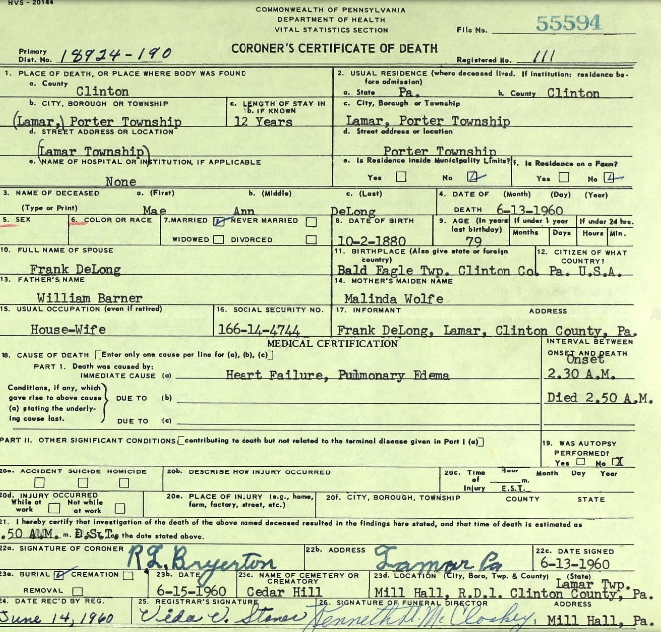 HVS - 20144
COMMONWEALTH OF PENNSYLVANIA
DEPARTMENT OF HEALTH
VITAL STATISTICS SECTION
File No. 55594
Primary
Dist. No. 18924-190
CORONER'S CERTIFICATE OF DEATH
Registered No. 111
1. PLACE OF DEATH, OR PLACE WHERE BODY WAS FOUND
a. County
Clinton
2. USUAL RESIDENCE (where deceased lived. If institution: residence before admission)
a. State Pa. b. County Clinton
b. CITY, BOROUGH OR TOWNSHIP
(Lamar,) Porter Township
c. LENGTH OF STAY IN b. IF KNOWN
12 Years
c. City, Borough or Township
Lamar, Porter Township
d. STREET ADDRESS OR LOCATION
(Lamar Township)
d. Street address or location
Porter Township
e. NAME OF HOSPITAL OR INSTITUTION, IF APPLICABLE
None
e. Is Residence Inside Municipality Limits?
Yes No
f. Is Residence on a Farm?
Yes No
3. NAME OF DECEASED a. (First) b. (Middle) c. (Last)
(Type or Print) Mae Ann DeLong
4. DATE OF (Month) (Day) (Year)
DEATH 6-13-1960
5. SEX
6. COLOR OR RACE
7. MARRIED NEVER MARRIED
WIDOWED DIVORCED
8. DATE OF BIRTH
10-2-1880
9. AGE (In years last birthday)
79
If under 1 year
Months Days
If under 24 hrs.
Hours Min.
10. FULL NAME OF SPOUSE
Frank DeLong
11. BIRTHPLACE (Also give state or foreign country)
Bald Eagle Twp. Clinton Co. Pa.
12. CITIZEN OF WHAT COUNTRY?
U.S.A.
13. FATHER'S NAME
William Barner
14. MOTHER'S MAIDEN NAME
Malinda Wolfe
15. USUAL OCCUPATION (even if retired)
House-Wife
16. SOCIAL SECURITY NO.
166-14-4744
17. INFORMANT ADDRESS
Frank DeLong, Lamar, Clinton County, Pa.
MEDICAL CERTIFICATION
INTERVAL BETWEEN
ONSET AND DEATH
18. CAUSE OF DEATH [Enter only one cause per line for (a), (b), (c)]
PART 1. Death was caused by:
IMMEDIATE CAUSE (a) Heart Failure, Pulmonary Edema
Onset
2.30 A.M.
Conditions, if any, which
gave rise to above cause
(a) stating the underly-
ing cause last.
DUE TO (b)
Died 2.50 A.M.
DUE TO (c)
PART II. OTHER SIGNIFICANT CONDITIONS [contributing to death but not related to the terminal disease given in Part I (a)]
19. WAS AUTOPSY
PERFORMED?
Yes No X
20a. ACCIDENT SUICIDE HOMICIDE
20b. DESCRIBE HOW INJURY OCCURRED
20c. Time of Injury
Hour m. E.S.T.
Month Day Year
20d. INJURY OCCURRED
While at work Not while at work
20e. PLACE OF INJURY (e.g., home, farm, factory, street, etc.)
20f. CITY, BOROUGH, TOWNSHIP COUNTY STATE
21. I hereby certify that investigation of the death of the above named deceased resulted in the findings here stated, and that time of death is estimated as
.50 A.M. m. D.S.T. on the date stated above.
22a. SIGNATURE OF CORONER
R.L. Bryerton
22b. ADDRESS
Lamar Pa
22c. DATE SIGNED
6-13-1960
23a. BURIAL CREMATION
REMOVAL
23b. DATE
6-15-1960
23c. NAME OF CEMETERY OR CREMATORY
Cedar Hill
23d. LOCATION (City, Boro, Twp. & County) (State)
Lamar Twp.
Mill Hall, R.D.1. Clinton County, Pa.
24. DATE REC'D BY REG.
June 14, 1960
25. REGISTRAR'S SIGNATURE
Veda C. Stoner
26. SIGNATURE OF FUNERAL DIRECTOR
Kenneth D. McCloskey
ADDRESS
Mill Hall, Pa.